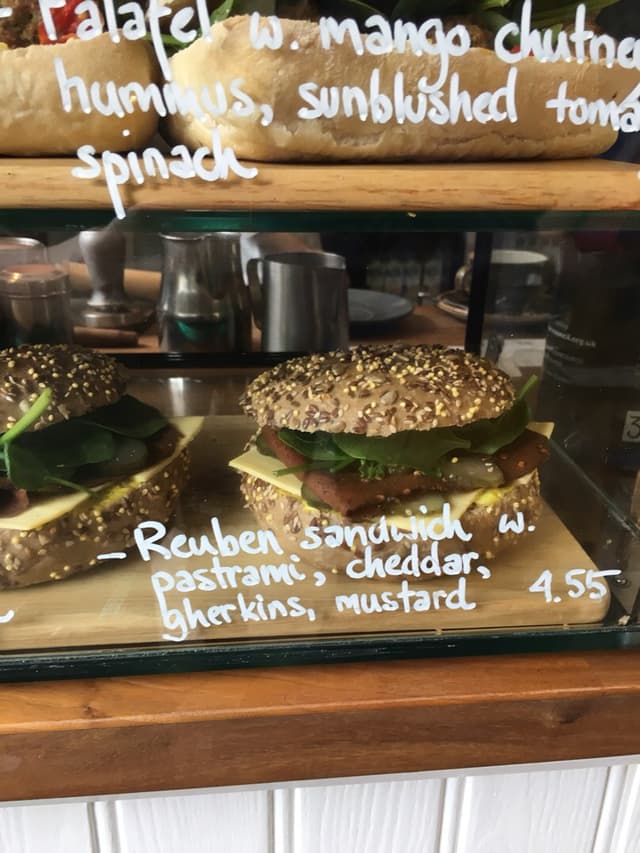 - Falafel w. mango chutne
hummus, sunblushed toma
spinach
- Reuben sandwich w.
pastrami, cheddar,
gherkins, mustard 4.55
3